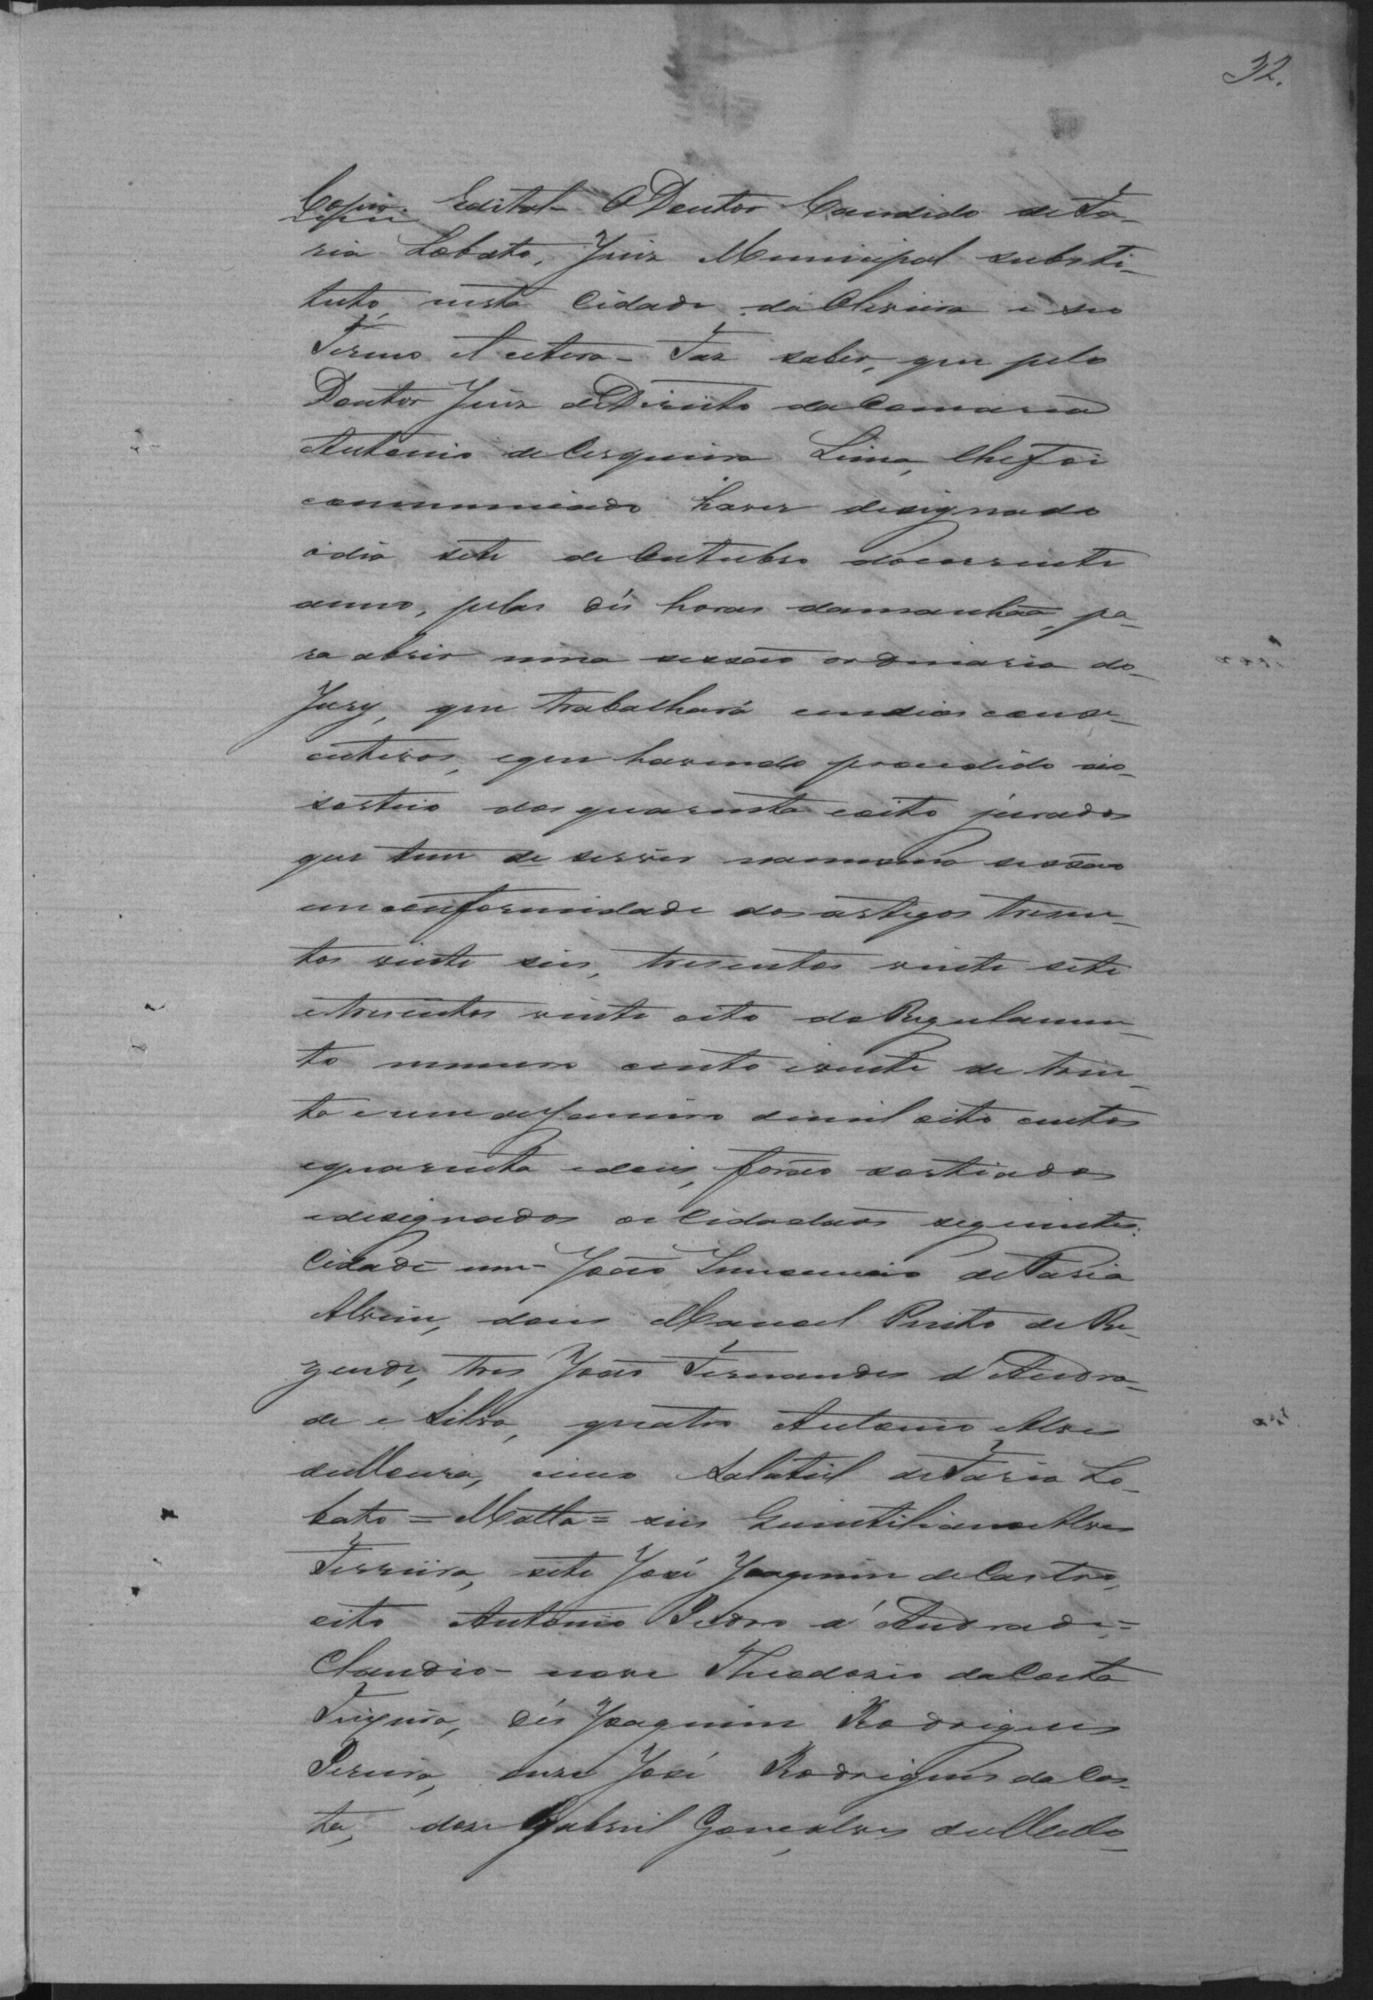 32.
Copia. Edital- O Doutor Candido de Fa-
ria Lobato, Juiz Municipal substi-
tuto, nesta Cidade da Oliveira e seu
Termo et cetera- Faz saber, que pelo
Doutor Juiz de Direito da Comarca
Antonio de Cerqueira Lima, lhe foi
communicado haver designado
o dia sete de Outubro do corrente
anno, pelas dés horas da manhãa, pa-
ra abrir uma sessão ordinaria do
Jury, que trabalhará em dias conse-
cutivos, e que havendo procedido ao
sorteio dos quarenta e oito jurados
que tem de servir na mesma sessão
em conformidade dos artigos tresen-
tos vinte seis, tresentos vinte sete
e tresentos vinte oito do Regulamen-
to numero cento e vinte de trin-
ta e um de Janeiro de mil oito centos
e quarenta e dous, forão sortiados
e designados os Cidadãos seguintes:
Cidade um- João Innocencio de Faria
Alvim, dous Manoel Pinto de Re-
zende, tres João Fernandes d'Andra-
de e Silva, quatro Antonio Alves
de Moura, cinco Salatiel de Faria Lo-
bato = Matta = seis Quintiliano Alves
Ferreira, sete José Joaquim de Castro,
oito Antonio Pedro d'Andrade =
Claudio- nove Theodosio da Costa
Teixeira, dés Joaquim Rodrigues
Pereira, onze José Rodrigues da Cos-
ta, dose Gabriel Gonçalves de Mello